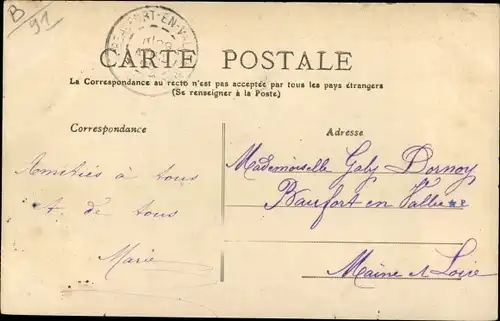 B/91
BEAUFORT-EN-VALLÉE
CARTE POSTALE
La Correspondance au recto n'est pas acceptée par tous les pays étrangers
(Se renseigner à la Poste)
Correspondance
Adresse
Amitiés à tous
et de tous
Marie
Mademoiselle Gaby Dornoy
Beaufort en Vallée
Maine et Loire